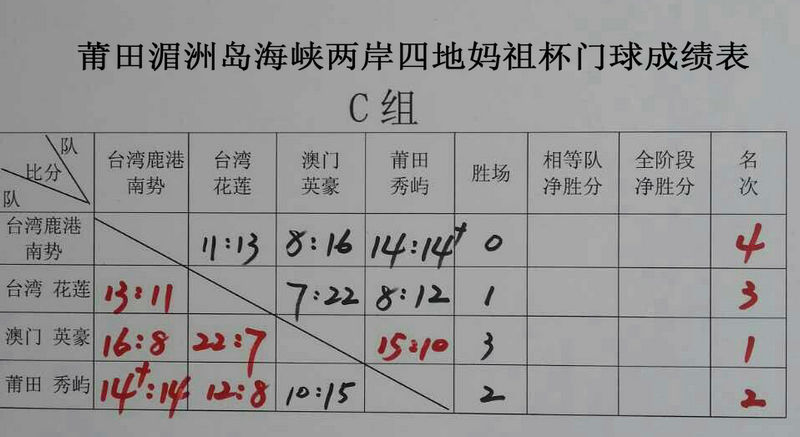 莆田湄洲岛海峡两岸四地妈祖杯门球成绩表
C组
队 比分 队 台湾鹿港南势 台湾花莲 澳门英豪 莆田秀屿 胜场 相等队净胜分 全阶段净胜分 名次
台湾鹿港南势 11:13 8:16 14:14⁺ 0 4
台湾 花莲 13:11 7:22 8:12 1 3
澳门 英豪 16:8 22:7 15:10 3 1
莆田 秀屿 14⁺:14 12:8 10:15 2 2